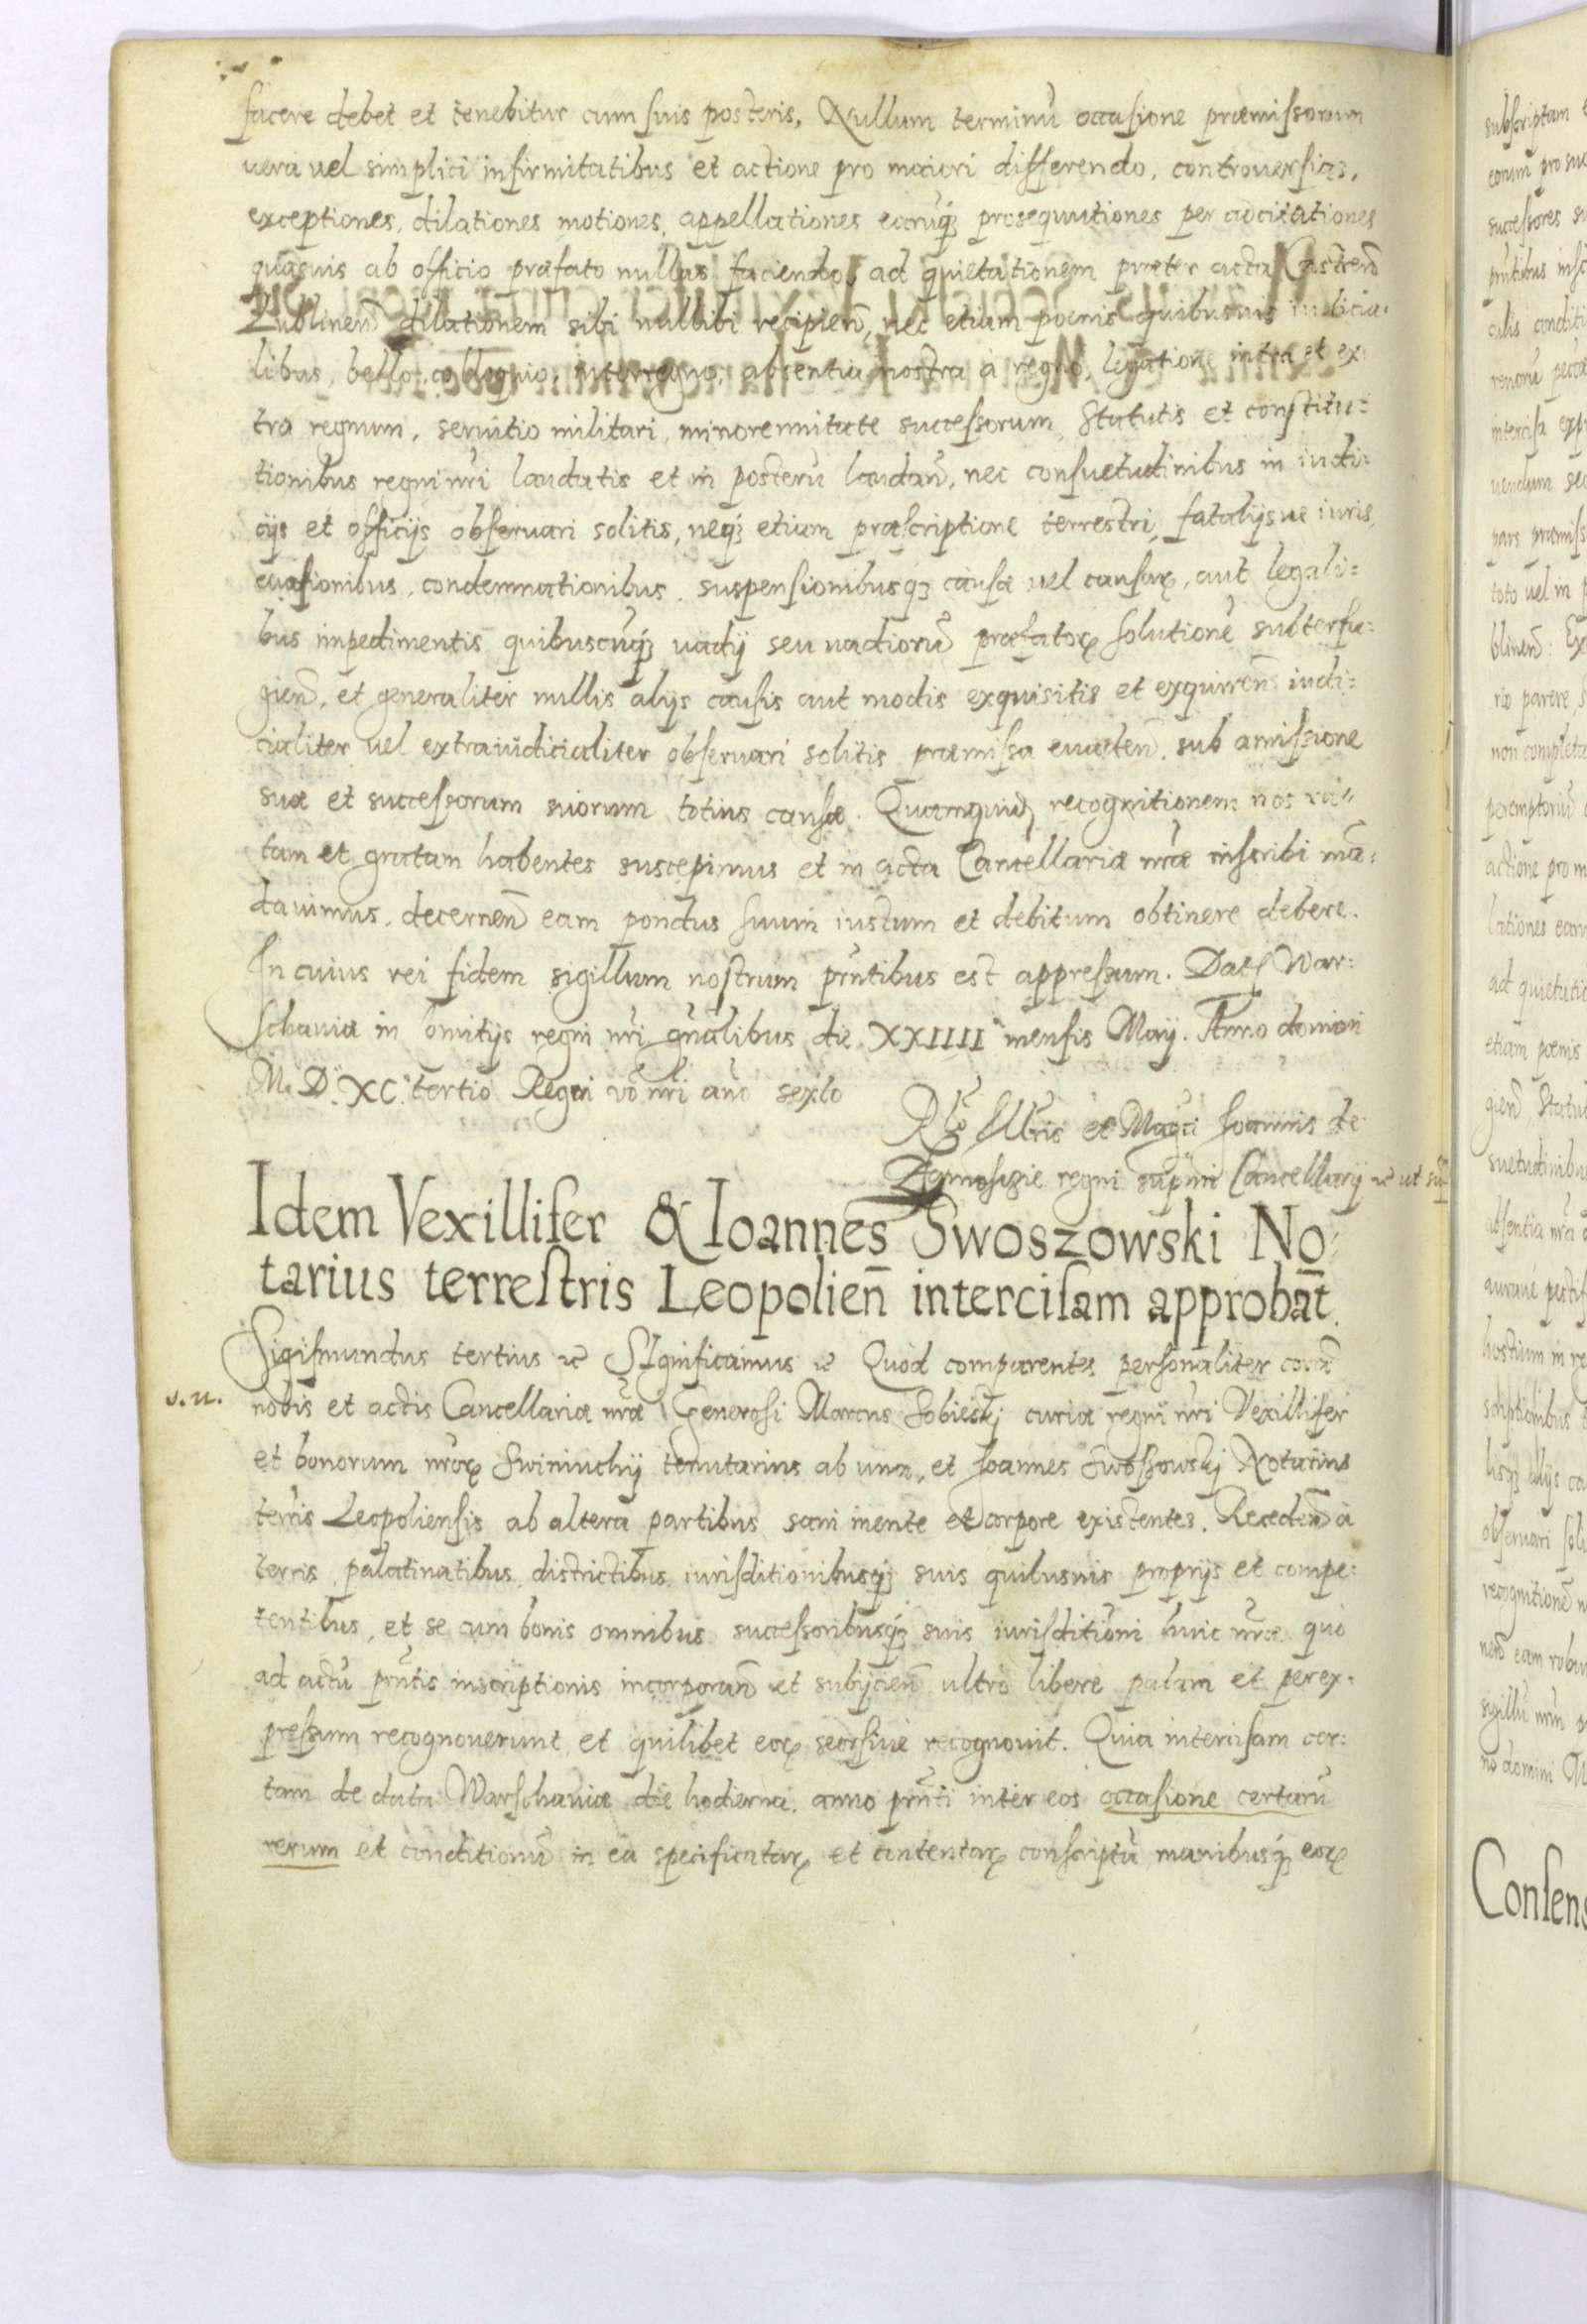 facere debet et tenebitur cum suis posteris, Nullum terminũ occasione præmissorum
vera vel simplici infirmitatibus et actione pro maiori differendo, controversias,
exceptiones, dilationes motiones, appellationes earũq₃ prosequutiones per adcitationes
quasvis ab officio præfato nullas faciendo, ad quietationem præter acta Castreñ
Lublineñ dilationem sibi nullibi recipieñ, nec etiam poenis quibusvis iudicia-
libus, bello, colloquio, interregno, absentia nostra a regno, legatione intra et ex
tra regnum, servitio militari, minorennitate successorum, Statutis et constitu:
tionibus regni nr̃i laudatis et in posterũ laudañ, nec consuetudinibus in iudi:
cijs et officijs observari solitis, neq₃ etiam præscriptione terrestri, fatalijsve iuris
evasionibus, condemnationibus, suspensionibusq₃ causæ vel causaꝝ, aut legali=
bus impedimentis quibuscũq₃ vadij seu vadiorũ præfatoꝝ solutionẽ subterfu:
gieñ, et generaliter nullis alijs causis aut modis exquisitis et exquireñ iudi:
cialiter vel extraiudicialiter observari solitis præmissa evadeñ, sub amissione
suæ et successorum suorum totius causæ. Quamquid₃ recognitionem nos ra=
tam et gratam habentes suscepimus et in acta Cancellariæ nr̃æ inscribi mã:
davimus, decerneñ eam pondus suum iustum et debitum obtinere debere.
In cuius rei fidem sigillum nostrum pr̃ntibus est appressum. Datꝭ War:
schaviæ in Comitijs regni nr̃i gñalibus die XXIIII mensis Maij. Anno domini
M. D. XC. tertio Regni vo nr̃i año sexto
Rlõ Illtris et Magci Joannis de
Zamoscie regni supmi Cancellarij ꝛc ut suꝑ
Idem Vexillifer & Ioannes Swoszowski No=
tarius terrestris Leopolieñ intercisam approbãt.
Sigismundus tertius ꝛc SIgnificamus ꝛc Quod comparentes personaliter corã
s. u.
nobis et actis Cancellariæ nr̃æ Generosi Marcus Sobieskj curiæ regni nr̃i Vexillifer
et bonorum nr̃oꝝ Swiniuchij tenutarius ab una, et Joannes Swoszowskj Notarius
terr̃is Leopoliensis ab altera partibus sani mente et corpore existentes. Recedeñ à
terris, palatinatibus, districtibus, iurisditionibusq₃ suis quibusvis proprijs et compe:
tentibus, et se cum bonis omnibus successoribusq₃ suis iurisditioni huic nr̃æ quo
ad actũ pr̃ntis inscriptionis incorporañ et subijcieñ ultro libere palam et per ex:
pressum recognoverunt, et quilibet eoꝝ seorsive recognovit. Quia intercisam cer:
tam de data Warschaviæ die hodierna, anno pr̃nti inter eos occasione certarũ
rerum et conditionũ in ea specificataꝝ et contentaꝝ conscriptã manibusq₃ eoꝝ